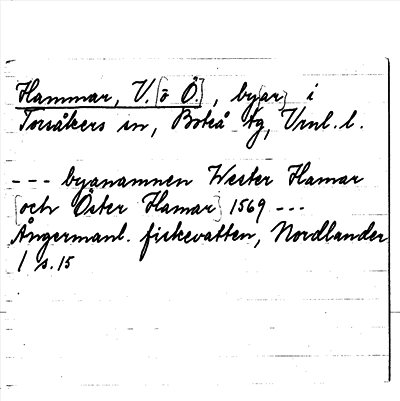 Hammar, V. [o Ö.], by[ar] i
Torsåkers sn, Boteå tg, Vrnl. l.
--- byanamnen Wester Hamar
[och Öster Hamar] 1569 ---
Ångermanl. fiskevatten, Nordlander
1 s. 15